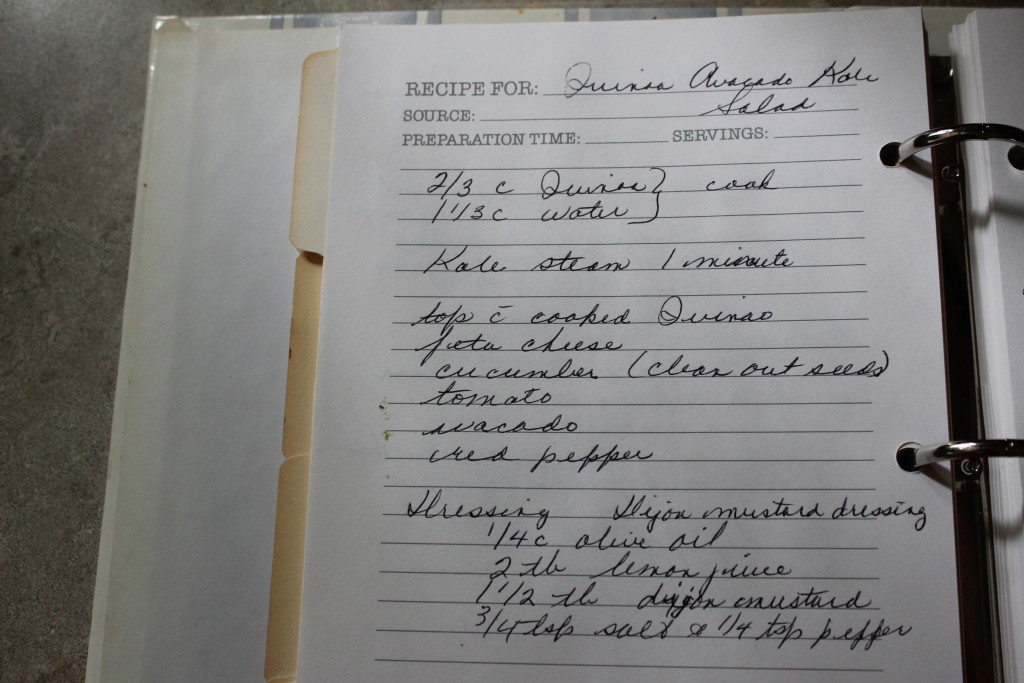 RECIPE FOR: Quinoa Avacado Kale
SOURCE: Salad
PREPARATION TIME: SERVINGS:
2/3 c Quinoa } cook
1 1/3 c water }
Kale steam 1 minute
top c̄ cooked Quinao
feta cheese
cucumber (clean out seeds)
tomato
avacado
red pepper
Dressing Dijon mustard dressing
1/4 c olive oil
2 tb lemon juice
1 1/2 tb dijon mustard
3/4 tsp salt & 1/4 tsp pepper